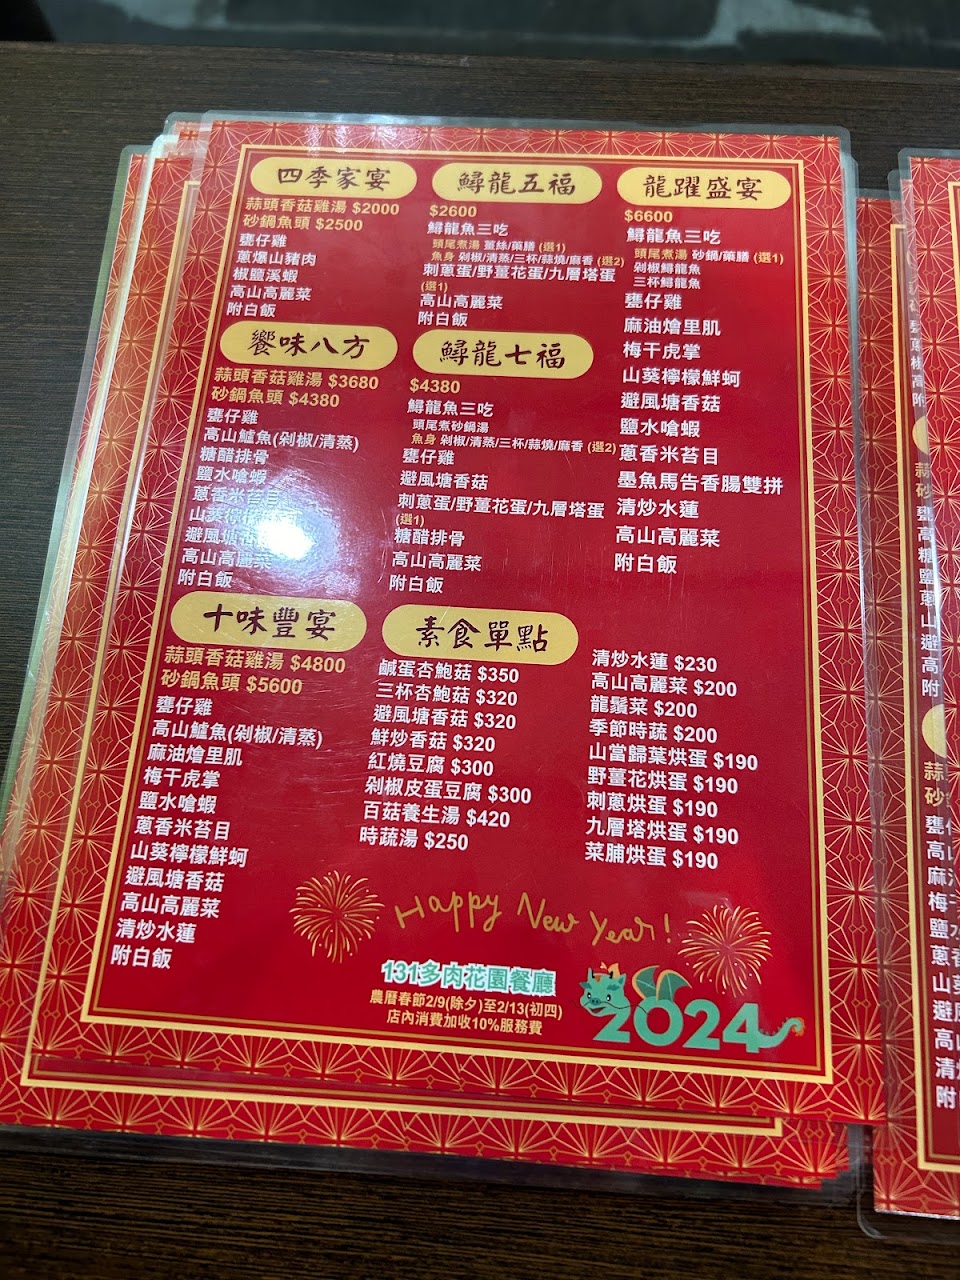 四季家宴
蒜頭香菇雞湯 $2000
砂鍋魚頭 $2500
甕仔雞
蔥爆山豬肉
椒鹽溪蝦
高山高麗菜
附白飯
鱘龍五福
$2600
鱘龍魚三吃
頭尾煮湯 薑絲/藥膳 (選1)
魚身 剁椒/清蒸/三杯/蒜燒/麻香 (選2)
刺蔥蛋/野薑花蛋/九層塔蛋
(選1)
高山高麗菜
附白飯
龍躍盛宴
$6600
鱘龍魚三吃
頭尾煮湯 砂鍋/藥膳 (選1)
剁椒鱘龍魚
三杯鱘龍魚
甕仔雞
麻油燴里肌
梅干虎掌
山葵檸檬鮮蚵
避風塘香菇
鹽水嗆蝦
蔥香米苔目
墨魚馬告香腸雙拼
清炒水蓮
高山高麗菜
附白飯
饗味八方
蒜頭香菇雞湯 $3680
砂鍋魚頭 $4380
甕仔雞
高山鱸魚(剁椒/清蒸)
糖醋排骨
鹽水嗆蝦
蔥香米苔目
山葵檸檬鮮蚵
避風塘香菇
高山高麗菜
附白飯
鱘龍七福
$4380
鱘龍魚三吃
頭尾煮砂鍋湯
魚身 剁椒/清蒸/三杯/蒜燒/麻香 (選2)
甕仔雞
避風塘香菇
刺蔥蛋/野薑花蛋/九層塔蛋
(選1)
糖醋排骨
高山高麗菜
附白飯
十味豐宴
蒜頭香菇雞湯 $4800
砂鍋魚頭 $5600
甕仔雞
高山鱸魚(剁椒/清蒸)
麻油燴里肌
梅干虎掌
鹽水嗆蝦
蔥香米苔目
山葵檸檬鮮蚵
避風塘香菇
高山高麗菜
清炒水蓮
附白飯
素食單點
鹹蛋杏鮑菇 $350
三杯杏鮑菇 $320
避風塘香菇 $320
鮮炒香菇 $320
紅燒豆腐 $300
剁椒皮蛋豆腐 $300
百菇養生湯 $420
時蔬湯 $250
清炒水蓮 $230
高山高麗菜 $200
龍鬚菜 $200
季節時蔬 $200
山當歸葉烘蛋 $190
野薑花烘蛋 $190
刺蔥烘蛋 $190
九層塔烘蛋 $190
菜脯烘蛋 $190
Happy New Year!
131多肉花園餐廳
農曆春節2/9(除夕)至2/13(初四)
店內消費加收10%服務費
2024